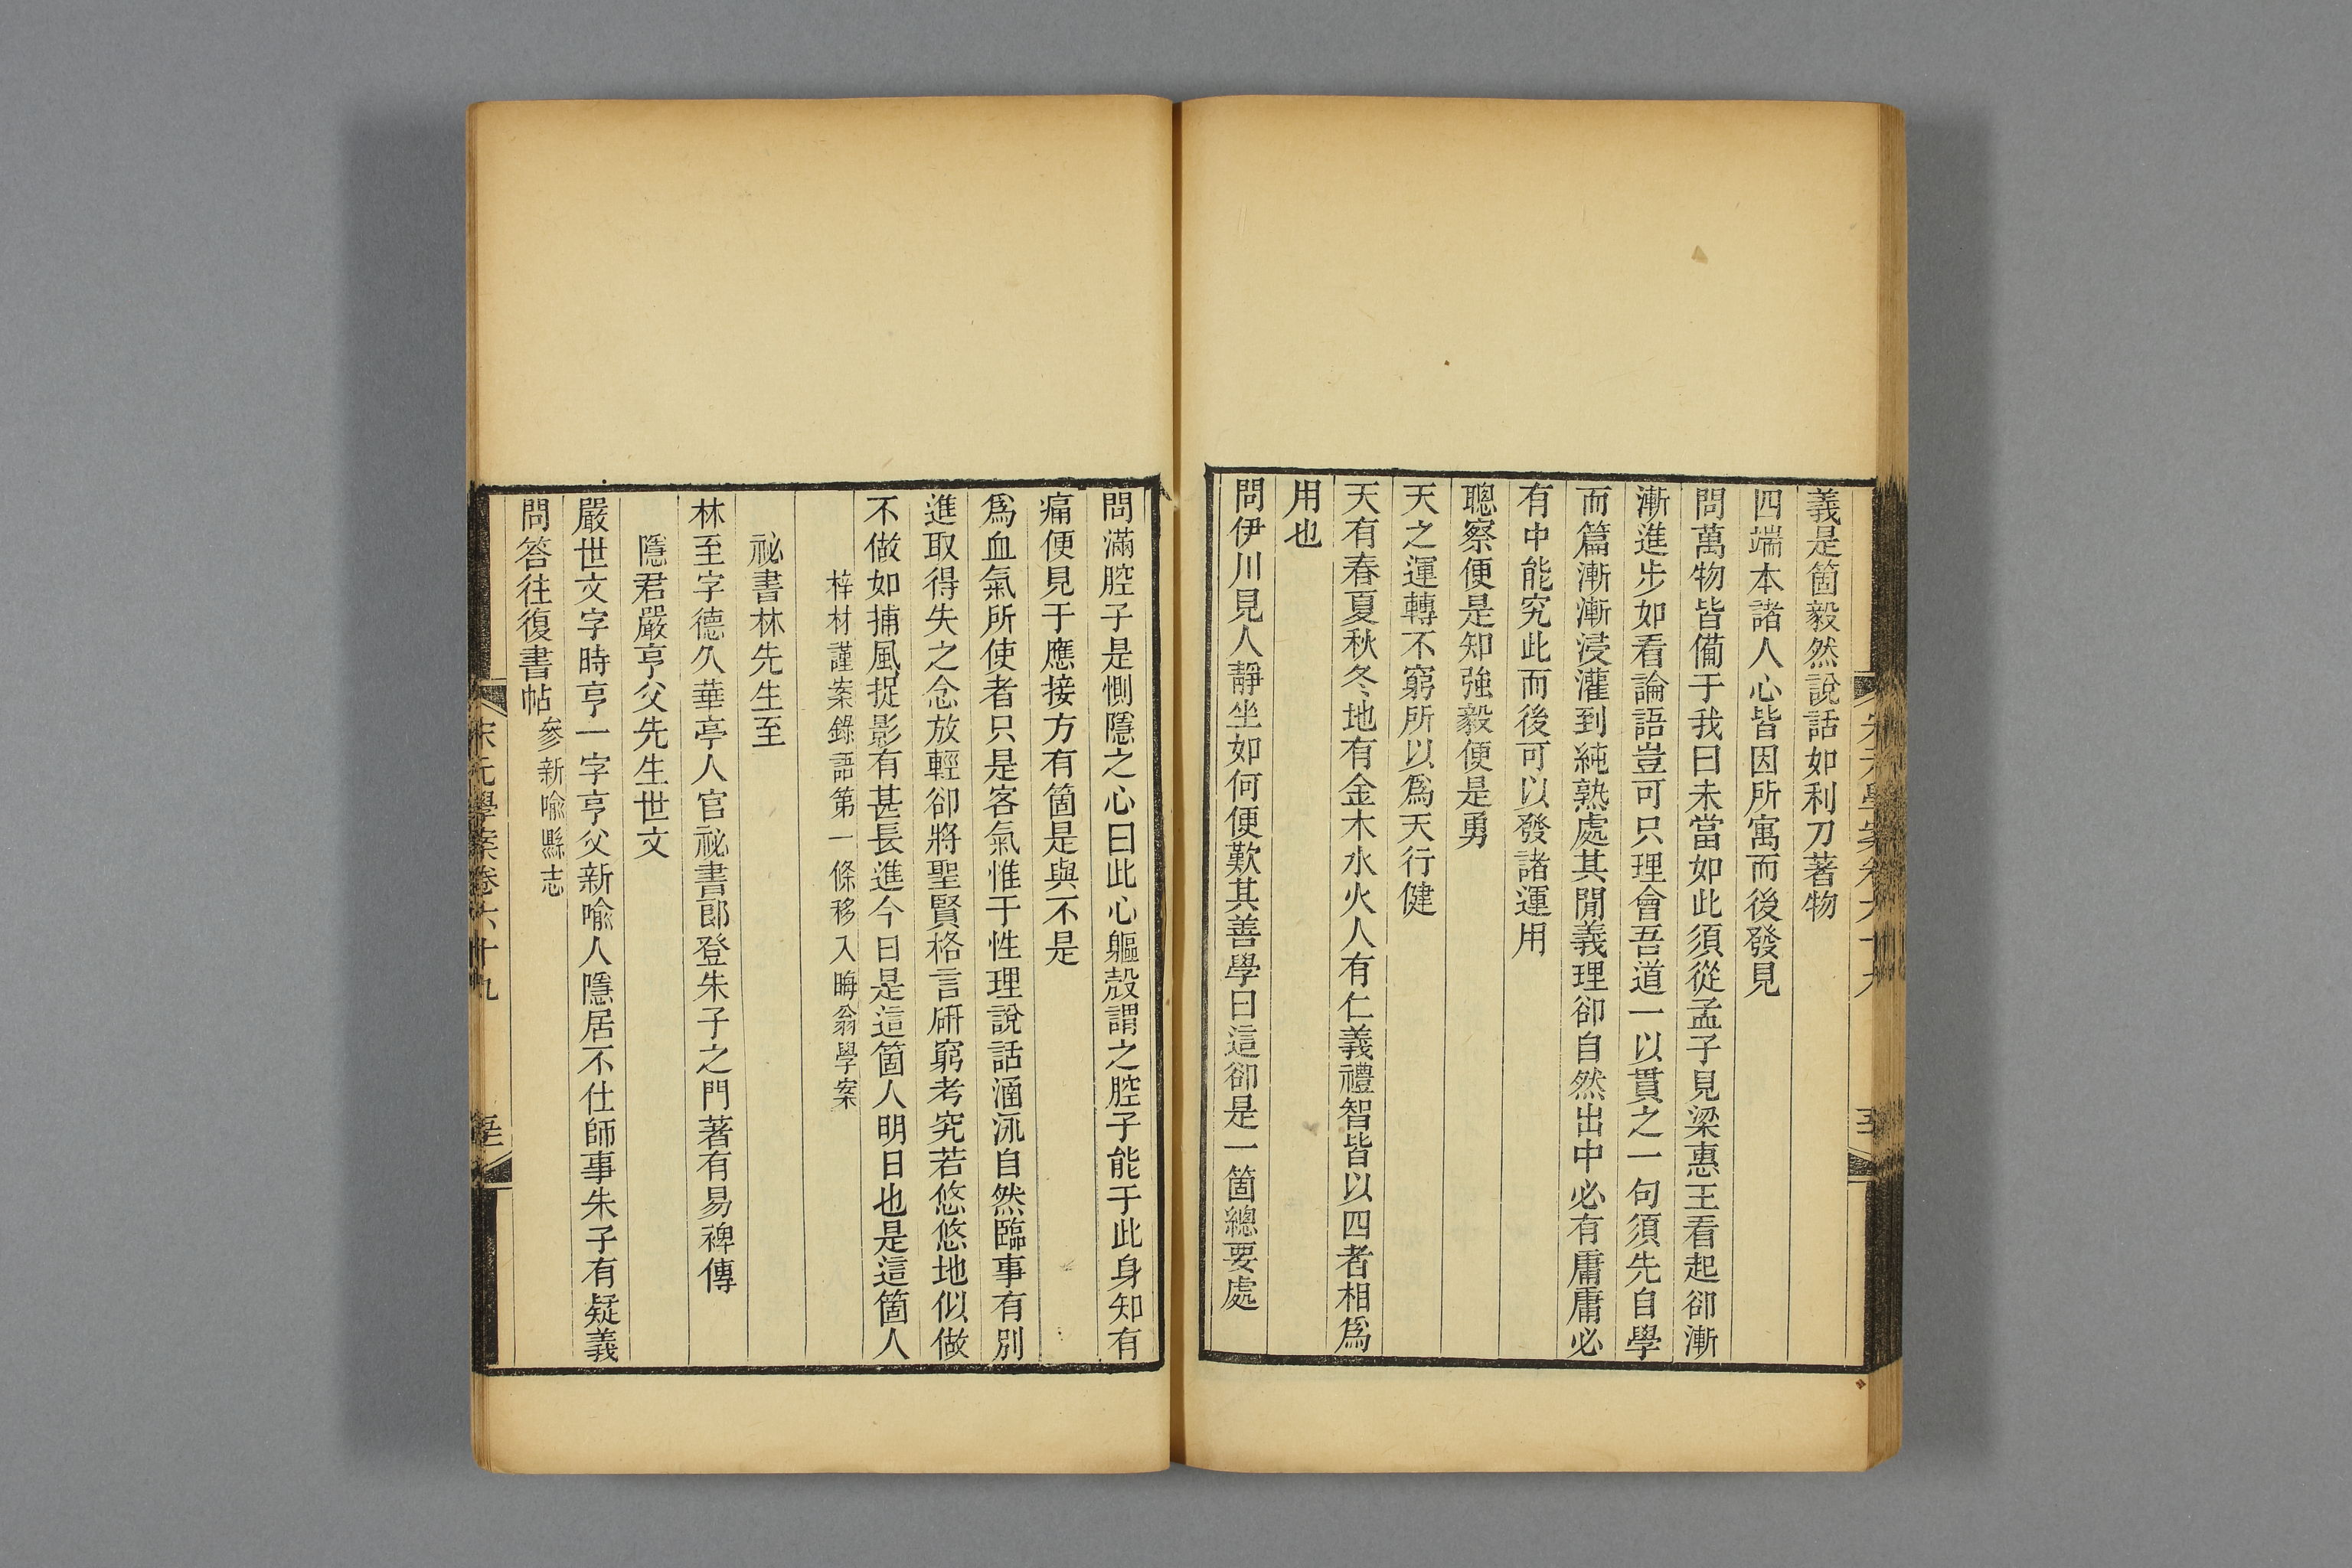 義是箇毅然說話如利刀著物
四端本諸人心皆因所寓而後發見
問萬物皆備于我曰未當如此須從孟子見梁惠王看起卻漸
漸進步如看論語豈可只理會吾道一以貫之一句須先自學
而篇漸漸浸灌到純熟處其閒義理卻自然出中必有庸庸必
有中能究此而後可以發諸運用
聰察便是知強毅便是勇
天之運轉不窮所以爲天行健
天有春夏秋冬地有金木水火人有仁義禮智皆以四者相爲
用也
問伊川見人靜坐如何便歎其善學曰這卻是一箇總要處
問滿腔子是惻隱之心曰此心軀殼謂之腔子能于此身知有
痛便見于應接方有箇是與不是
爲血氣所使者只是客氣惟于性理說話涵泳自然臨事有別
進取得失之念放輕卻將聖賢格言研窮考究若悠悠地似做
不做如捕風捉影有甚長進今日是這箇人明日也是這箇人
梓材謹案錄語第一條移入晦翁學案
祕書林先生至
林至字德久華亭人官祕書郎登朱子之門著有易裨傳
隱君嚴亨父先生世文
嚴世文字時亨一字亨父新喻人隱居不仕師事朱子有疑義
問答往復書帖參新喻縣志
宋元學案卷六十九